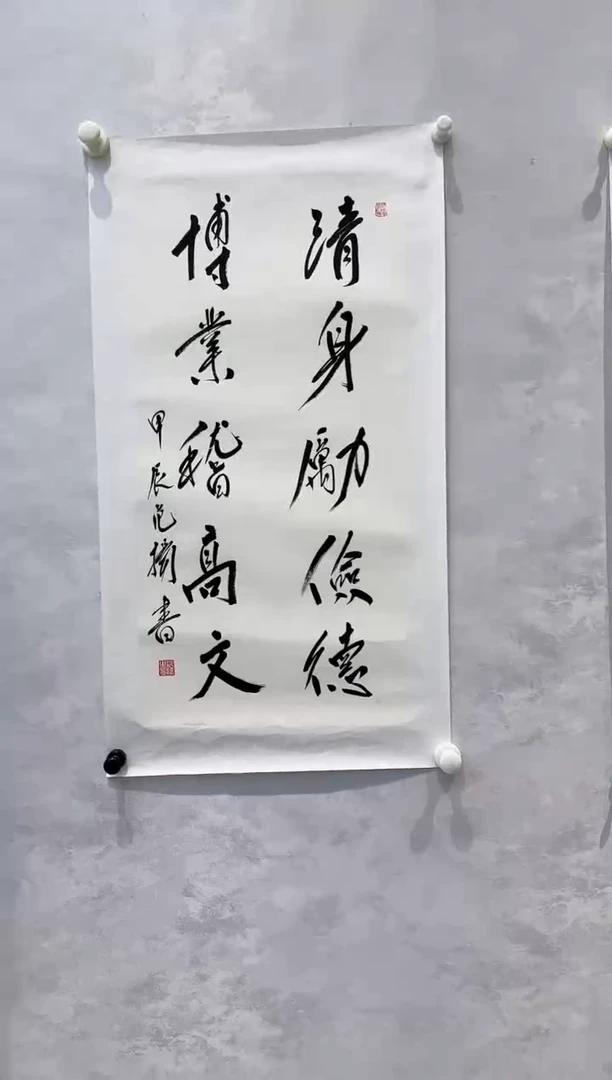 清身勵儉德
博業稽高文
甲辰范㧑書